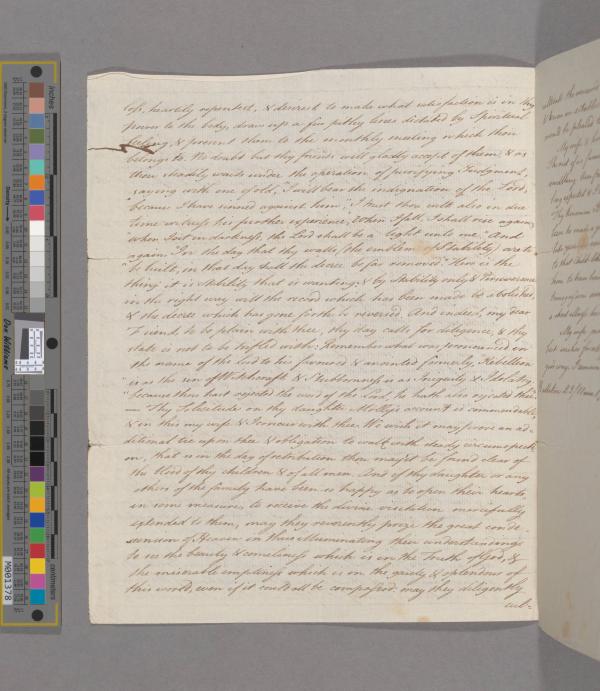 loss, heartily repented, & desirest to make what satisfaction is in thy
power to the body, draw up a few pithy lines dictated by Spiritual
feeling, & present them to the monthly meeting which thou
belongs to. No doubt but thy friends will gladly accept of them & as
thou steadily waits under the operation of purifying Judgment,
saying with one of old, "I will bear the indignation of the Lord,
because I have sinned against him" I trust thou wilt also in due
time witness his further experience, "When I fall, I shall rise again;
when I sit in darkness, the Lord shall be a light unto me." And
again "In the day that thy walls (the emblem of Stability) are to
"be built, in that day shall the decree be far removed." Here is the
thing: it is stability that is wanting; & by stability only & Perseverance
in the right way will the record which has been made be abolished,
& the decree which has gone forth is reversed. And indeed, my dear
Friend, to be plain with thee, thy day calls for diligence, & thy
state is not to be trifled with: Remember what was pronounced in
the name of the Lord to his favoured & anointed formerly, Rebellion
"is as the sin of Witchcraft & Stubbornness is as Iniquity & Idolatry,
"because thou hast rejected the word of the Lord, he hath also rejected thee"
— Thy Solicitude on thy daughter Molly's account is commendable,
& in this my wife & I concur with thee. We wish it may prove an ad-
ditional tie upon thee & obligation to walk with steady circumspecti-
on, that is in the day of retribution thou mayst be found clear of
the blood of thy children & of all men. And if thy daughter or any
others of the family have been so happy as to open their hearts
in some measure, to receive the divine visitation mercifully
extended to them, may they reverently prize the great conde-
scension of Heaven in thus illuminating their understandings
to see the beauty & comeliness which is in the Truth of God, &
the miserable emptiness which is in the gaiety & splendour of
this world, even if it could all be compassed: may they diligently
cul-
inches
centimetres
Don Williams
M001378